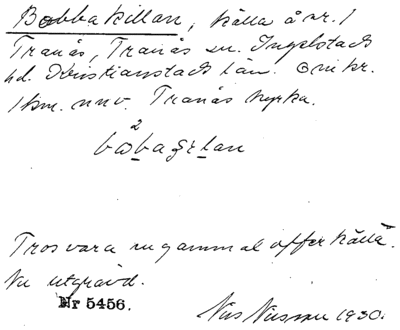 Bobbakillan, källa å nr. 1
Tranås, Tranås sn. Ingelstads
hd. Kristianstads län. Omkr.
1 km. nnv. Tranås kyrka.
2
Tros vara en gammal offerkälla.
Nu utgrävd.
Nr 5456.
Nils Nilsson 1930.